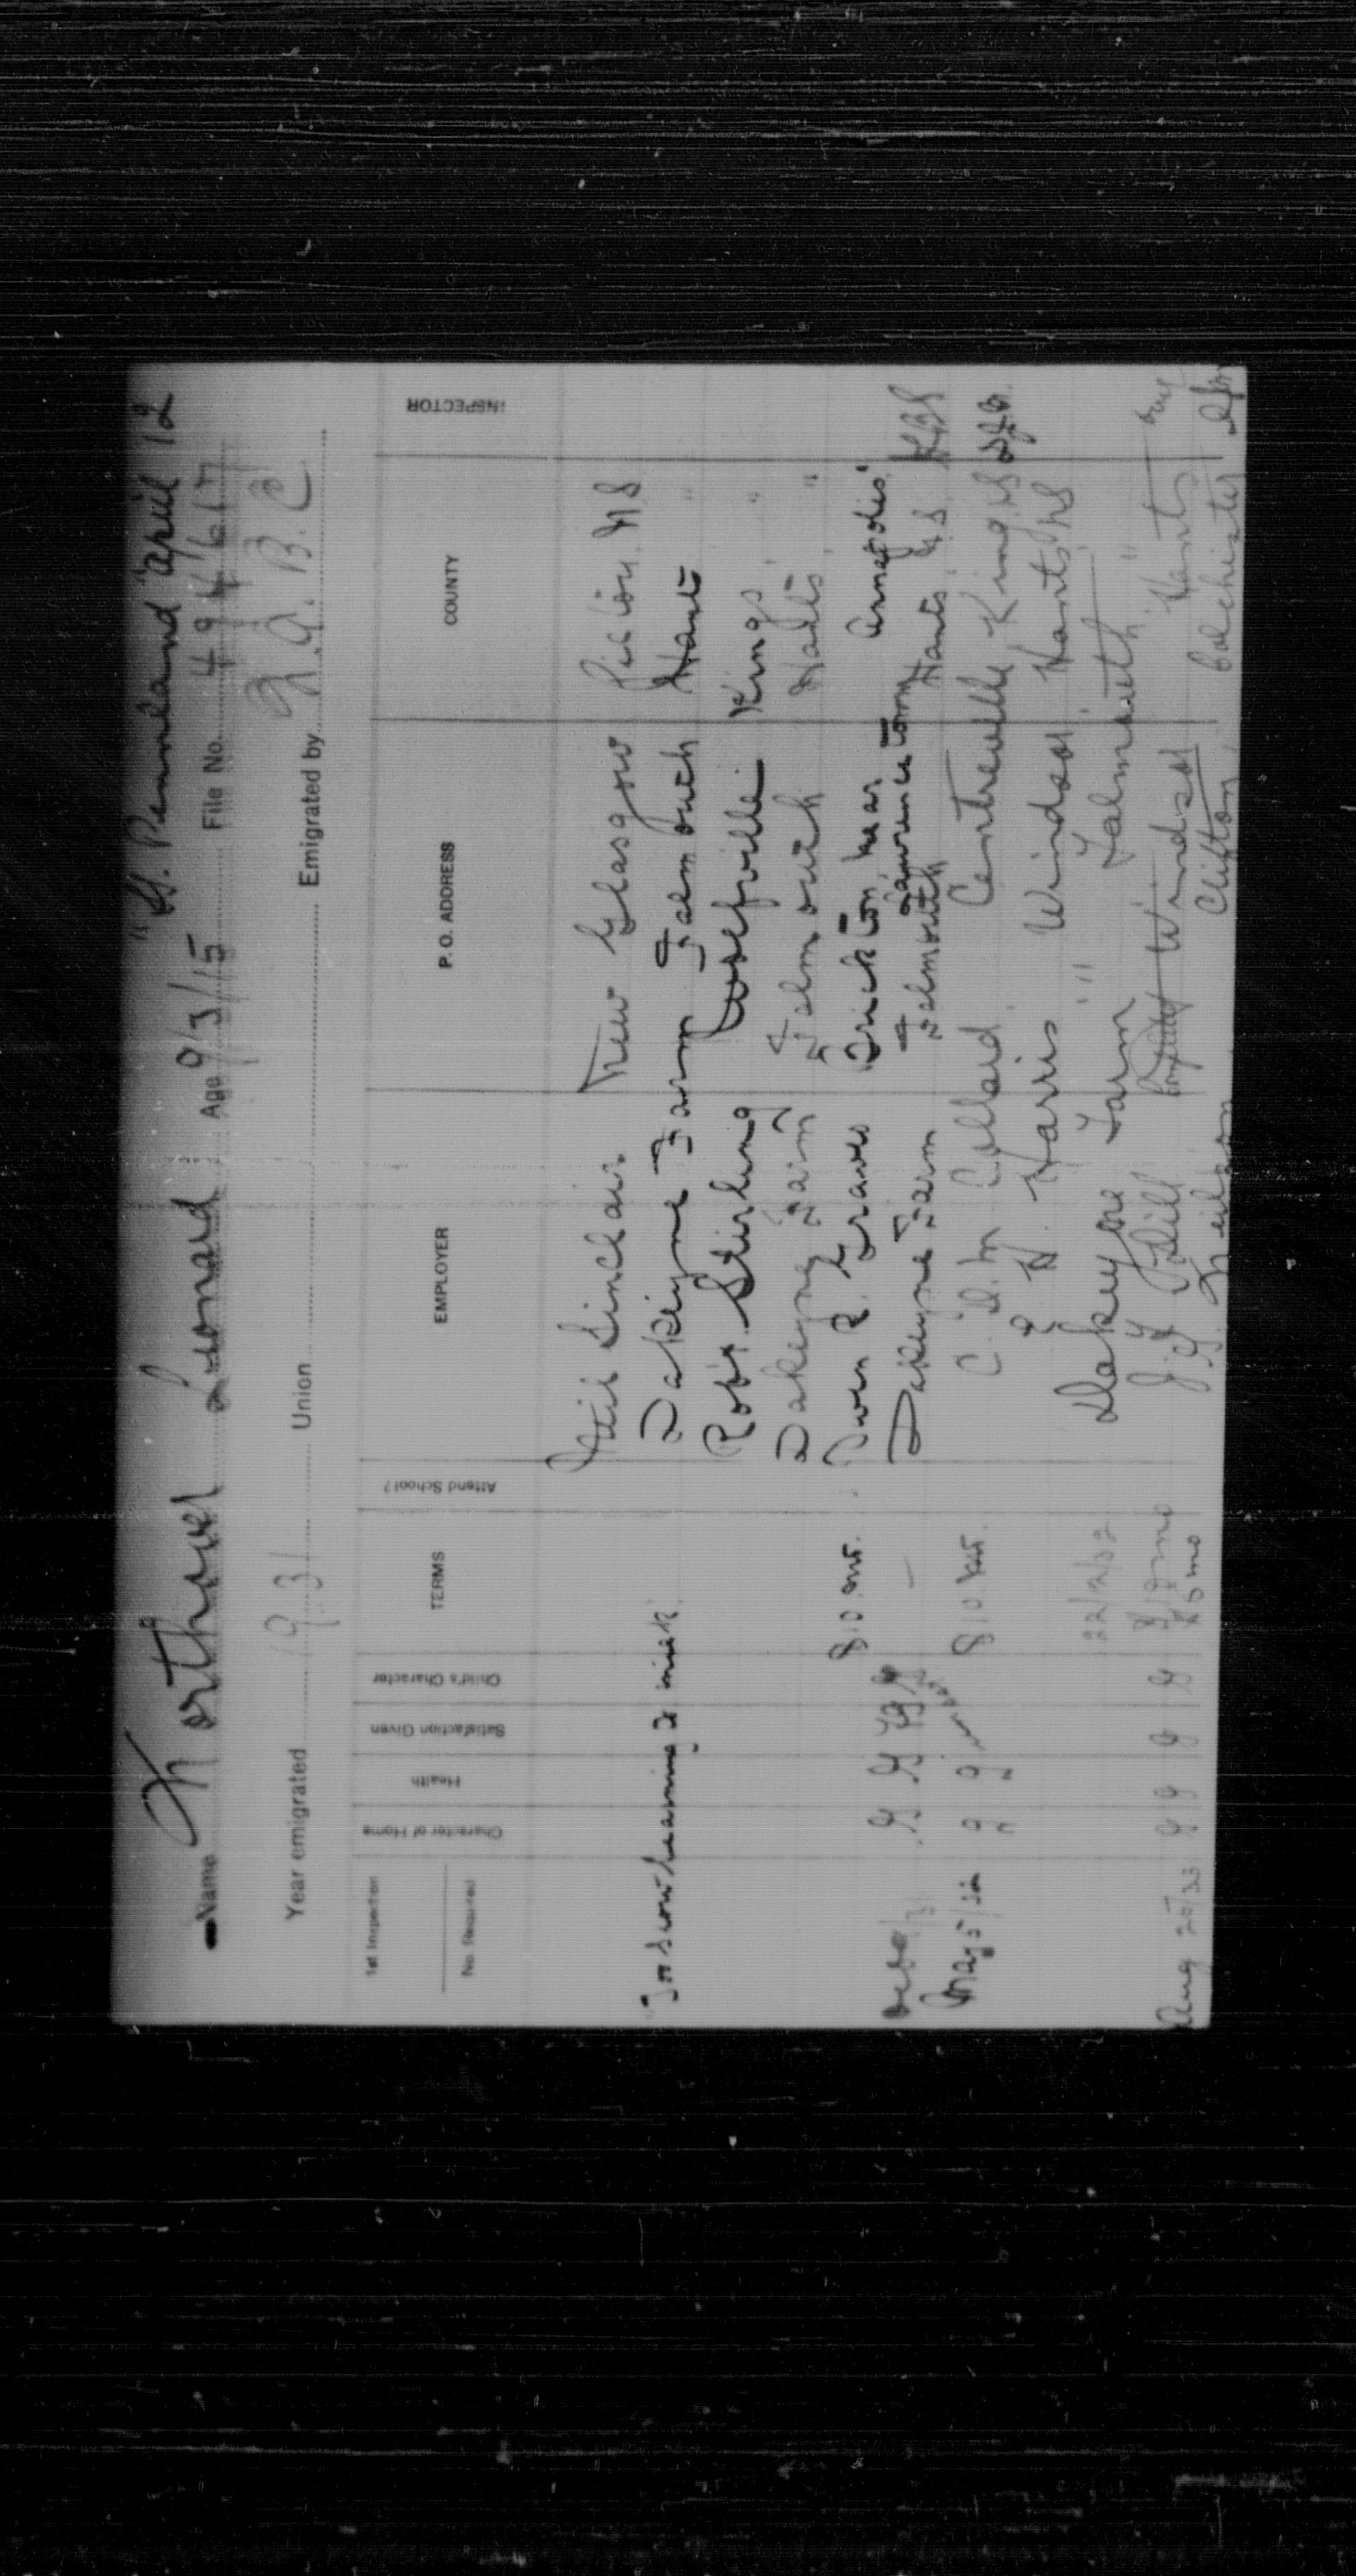 "SS. Pennland" April 12
Name Northover Leonard Age 9/3/15 File No. 494617
Year emigrated 1931 Union Emigrated by
1st Inspection
No. Required
Character of Home Health Satisfaction Given Child's Character TERMS Attend School? EMPLOYER P. O. ADDRESS COUNTY INSPECTOR
Neil Sinclair New Glasgow Pictou N S
Too slow learning to milk Dakeyne Farm Falmouth Hants "
Robt. Stirling Wolfville Kings "
Dakeyne Farm Falmouth Hants "
$10 mt. Owen R. Graves Brickton near Lawrencetown Annapolis
G G Dakeyne Farm Falmouth Hants N S
May 5/32 g g $10 mt. C. D. M. Collard Centreville Kings NS
E H Harris Windsor Hants NS
22/12/32 Dakeyne Farm " Falmouth "
$10 mo J. Dill Windsor Hants
Aug 25/33 g g g g $5 mo J. G. Neilson Clifton, Colchester